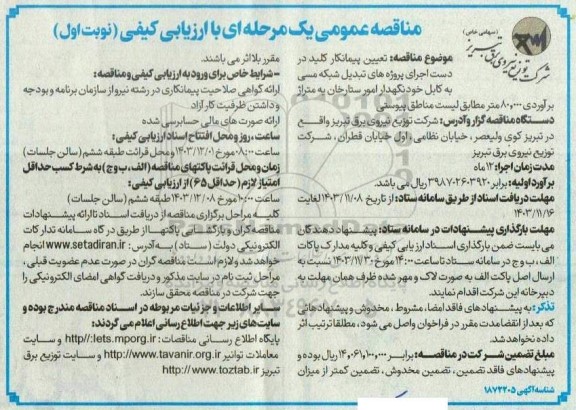 مناقصه عمومی یک مرحله ای با ارزیابی کیفی (نوبت اول)
(سهامی خاص)
شرکت توزیع نیروی برق تبریز
موضوع مناقصه: تعیین پیمانکار کلید در
دست اجرای پروژه های تبدیل شبکه مسی
به کابل خودنگهدار امور ستارخان به متراژ
برآوردی ۸۰،۰۰۰ متر مطابق لیست مناطق پیوستی
دستگاه مناقصه گزار و آدرس: شرکت توزیع نیروی برق تبریز واقع
در تبریز کوی ولیعصر، خیابان نظامی اول خیابان قطران، شرکت
توزیع نیروی برق تبریز
مدت زمان اجرا: ۱۲ ماه
برآورد اولیه: برابر ۳۹۸،۷۰۲،۶۰۳،۹۲۰ ریال می باشد.
مهلت دریافت اسناد از طریق سامانه ستاد: از تاریخ ۱۴۰۳/۱۱/۰۸ لغایت
۱۴۰۳/۱۱/۱۶
مهلت بارگذاری پیشنهادات در سامانه ستاد: پیشنهاد دهندگان
می بایست ضمن بارگذاری اسناد ارزیابی کیفی و کلیه مدارک پاکات
الف، ب و ج در سامانه ستاد تا ساعت ۱۴:۰۰ مورخ ۱۴۰۳/۱۱/۳۰ نسبت به
ارسال اصل پاکت الف به صورت لاک و مهر شده ظرف همان مهلت به
دبیرخانه این شرکت اقدام نمایند.
تذکر: به پیشنهادهای فاقد امضا، مشروط، مخدوش و پیشنهادهائی
که بعد از انقضا مدت مقرر در فراخوان واصل می شود، مطلقا ترتیب اثر
داده نخواهد شد.
مبلغ تضمین شرکت در مناقصه: برابر ۱۴،۰۶۱،۱۰۰،۰۰۰ ریال بوده و
پیشنهادهای فاقد تضمین، تضمین مخدوش، تضمین کمتر از میزان
مقرر بلا اثر می باشند.
- شرایط خاص برای ورود به ارزیابی کیفی و مناقصه:
ارائه گواهی صلاحیت پیمانکاری در رشته نیرو از سازمان برنامه و بودجه
و داشتن ظرفیت کار آزاد
ارائه صورت های مالی حسابرسی شده
ساعت، روز و محل افتتاح اسناد ارزیابی کیفی:
ساعت ۰۸:۰۰ مورخ ۱۴۰۳/۱۲/۰۱ و محل قرائت طبقه ششم (سالن جلسات)
زمان و محل قرائت پاکتهای مناقصه (الف، ب و ج) به شرط کسب حداقل
امتیاز لازم (حداقل ۶۵) از ارزیابی کیفی:
ساعت ۱۰:۰۰ مورخ ۱۴۰۳/۱۲/۰۸ طبقه ششم (سالن جلسات)
کلیه مراحل برگزاری مناقصه از دریافت اسناد تا ارائه پیشنهادات
مناقصه گران و بازگشایی پاکتها از طریق درگاه سامانه تدارکات
الکترونیکی دولت (ستاد) به آدرس: www.setadiran.ir انجام
خواهد شد و لازم است مناقصه گران در صورت عدم عضویت قبلی،
مراحل ثبت نام در سایت مذکور و دریافت گواهی امضای الکترونیکی را
جهت شرکت در مناقصه محقق سازند.
سایر اطلاعات و جزئیات مربوطه در اسناد مناقصه مندرج بوده و
سایت های زیر جهت اطلاع رسانی اعلام می گردند:
پایگاه اطلاع رسانی مناقصات: http://iets.mporg.ir و سایت
معاملات توانیر http://www.tavanir.org.ir و سایت توزیع برق
تبریز http:// www.toztab.ir
شناسه آگهی ۱۸۷۲۲۰۵